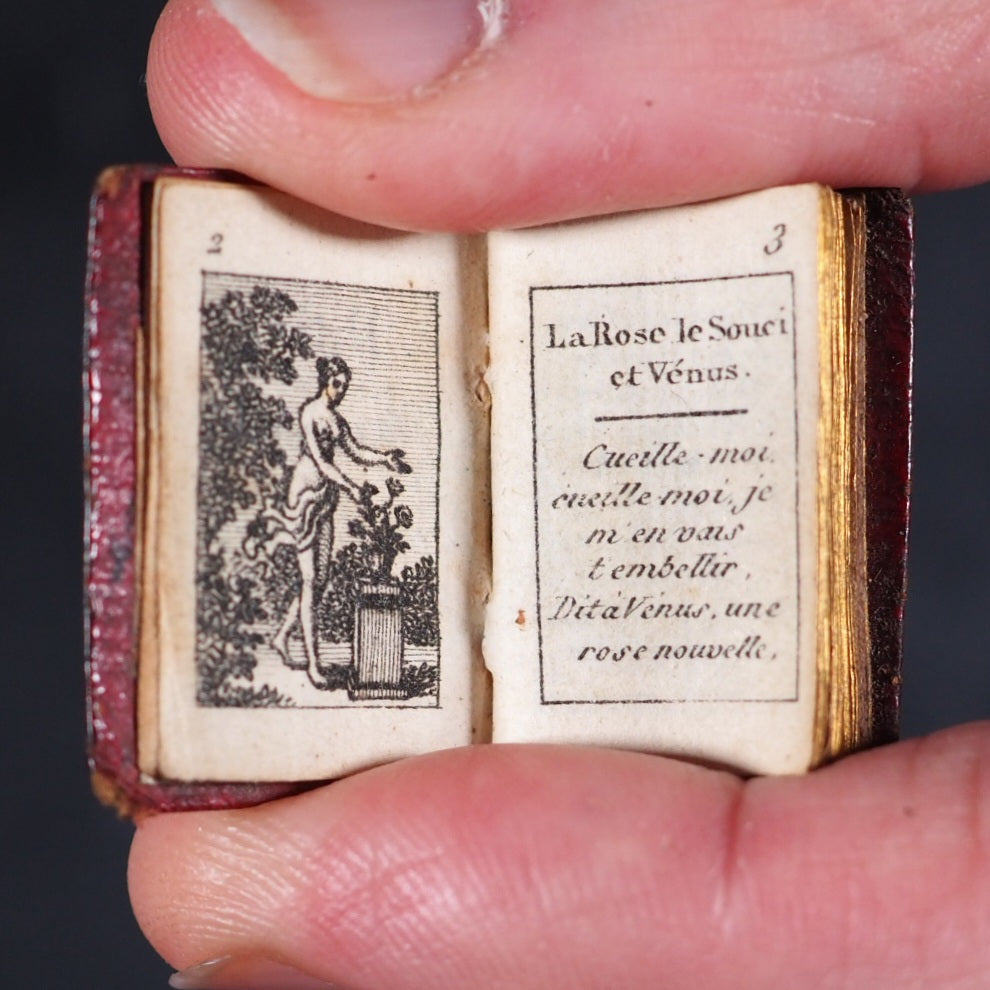 2
3
La Rose le Souci
et Vénus.
Cueille-moi,
cueille-moi, je
m'en vais
t'embellir,
Dit à Vénus, une
rose nouvelle,